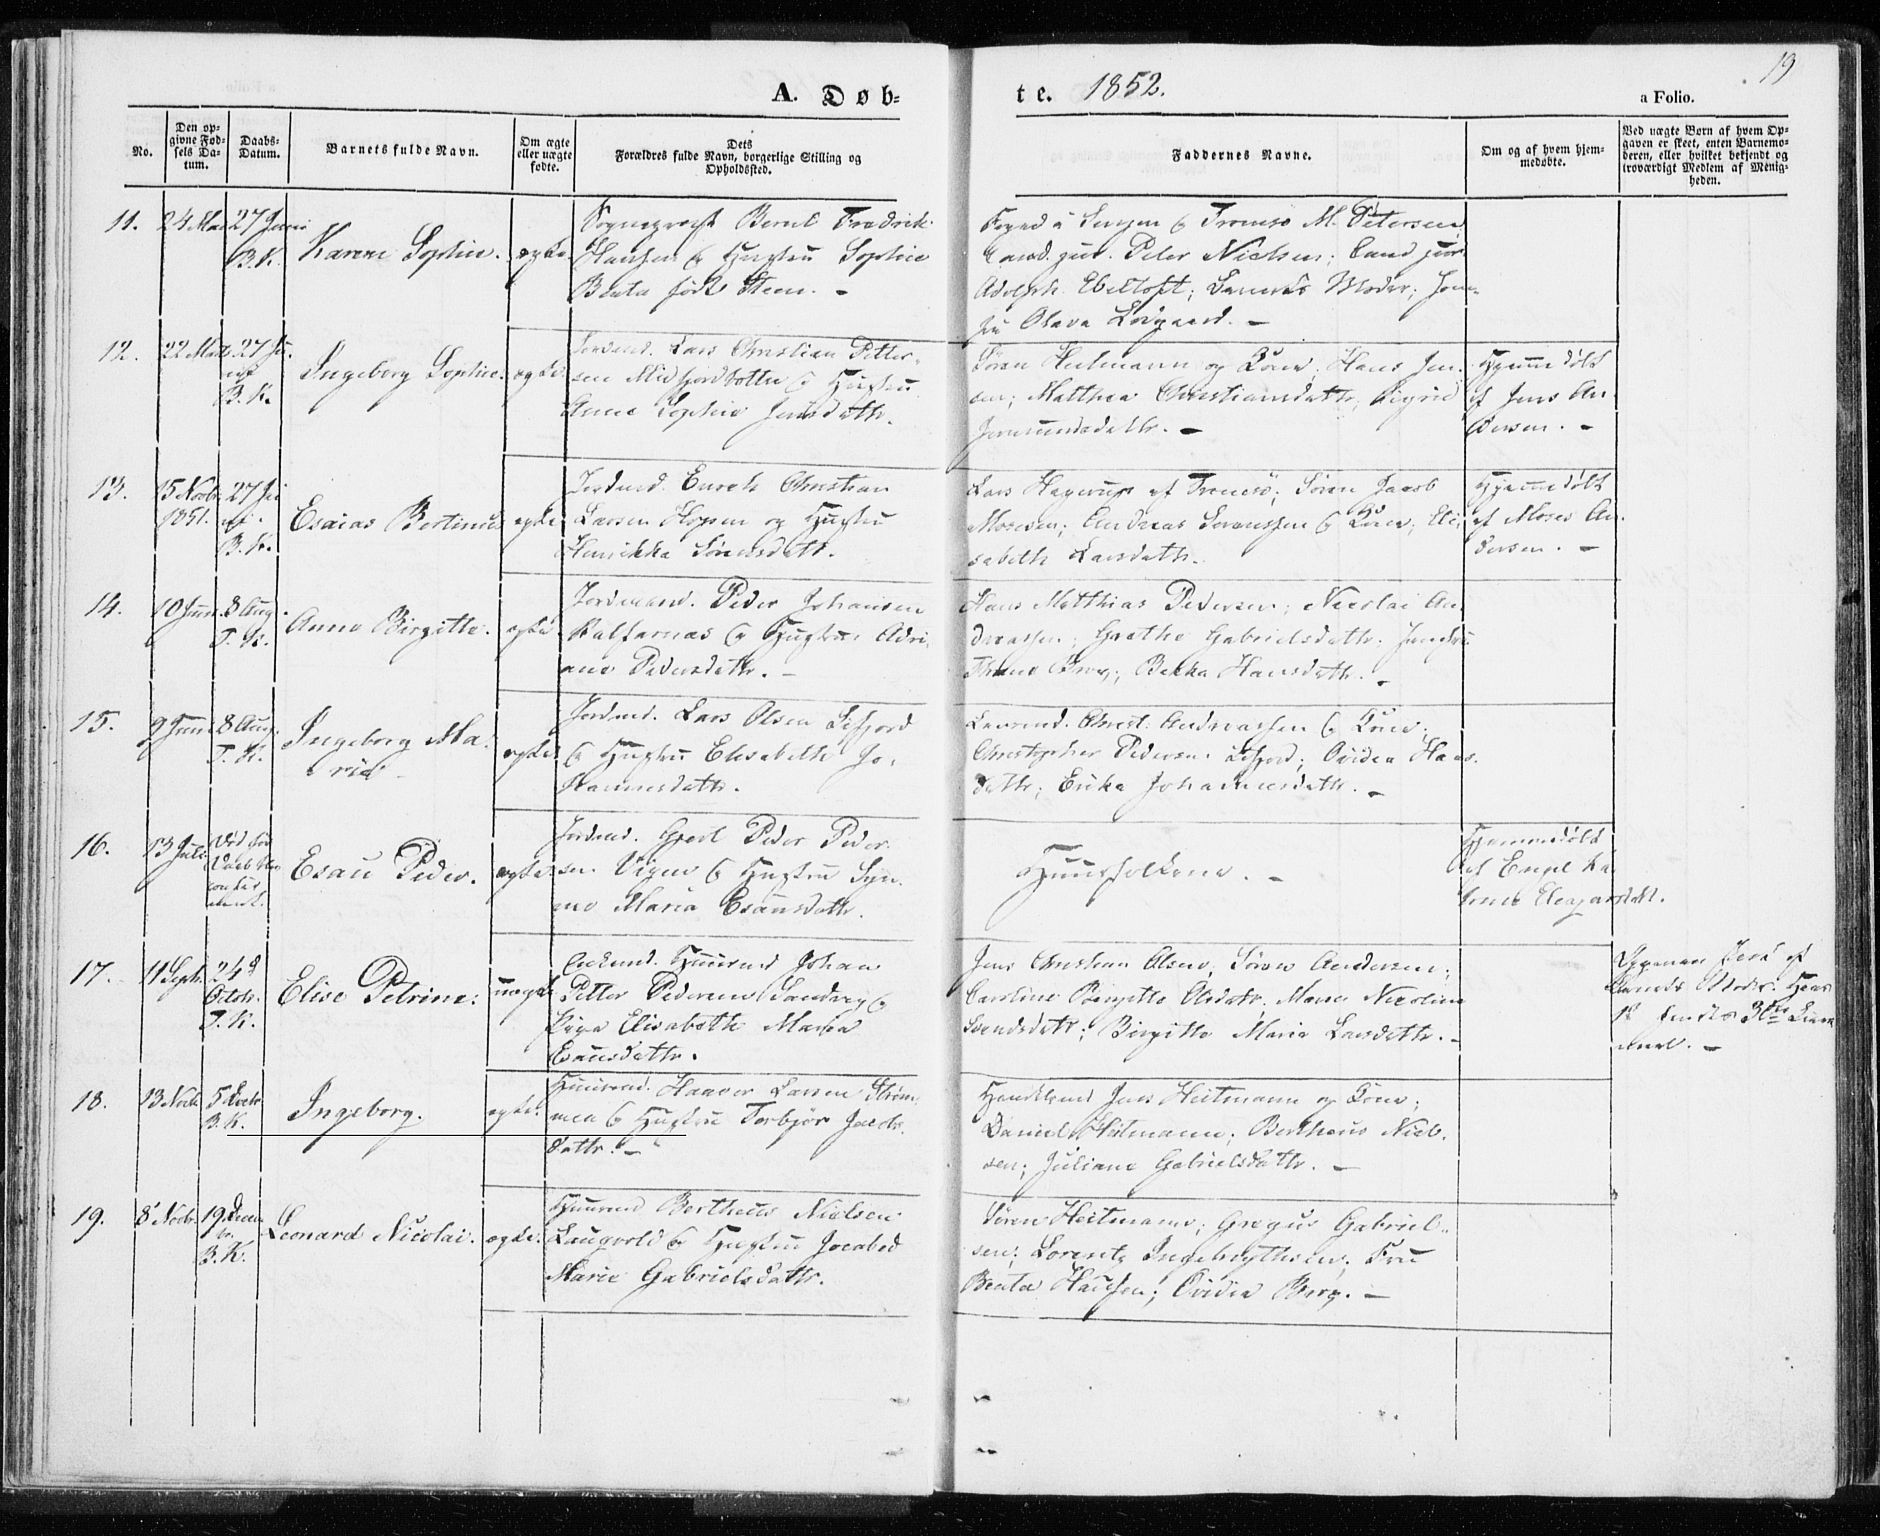 19
A. Døb=
te. 1852.
a Folio.
No.
Den op=
givne Fød=
sels Da=
tum.
Daabs=
Datum.
Barnets fulde Navn.
Om ægte
eller uægte
fødte.
Dets
Forældres fulde Navn, borgerlige Stilling og
Opholdssted.
Faddernes Navne.
Om og af hvem hjem=
medøbte.
Ved uægte Børn af hvem Op=
gaven er skeet, enten Barnemo=
deren, eller hvilket bekjendt og
troværdigt Medlem af Menig=
heden.
11.
24 Mai
27 Juni
B. K.
Karen Sophie.
ægte.
Sogneprest Bernt Fredrik
Hansen & Hustru Sophie
Beata født Steen. -
Foged i Senjen & Tromsø M. Petersen,
Cand. jur. Peter Nielsen; Cand jur
Adolph Ebeltoft; Barnets Moder; Jom-
fru Olava Lovgaard. -
12.
22 Mai
27 Ju-
ni
B. K.
Ingeborg Sophie.
ægte
Lars Christian Petter-
sen Midfjordbotn & Hustru
Anne Sophie Jensdattr.
Søren Heitmann og Kone; Hans Jen-
sen; Matthea Christiansdattr, Sigrid
Hjemmedøbt
af Jens An-
dersen. -
13.
15 Novbr
1851.
27 Ju
ni.
B. K.
Esaias Bertinus
ægte
Enoch Christian
Larsen Hopen og Hustru
Henrikka Sørensdattr.
Lars Hagerup af Tromsø; Søren Jacob
Mosesen; Andreas Sørenssen & Kone; Eli-
sabeth Larsdattr.
Hjemmedøbt
af Moses An-
dersen. -
14.
10 Juni.
8 Aug.
T. K.
Anne Birgitte.
ægte.
Peder Johansen
Kalfarnæs & Hustru Adri-
ane Pedersdattr. -
Hans Matthias Pedersen; Nicolai An-
dreassen; Grethe Gabrielsdattr. Jomfru
Bekka Hansdattr. -
15.
9 Juni
8 Aug.
T. K.
Ingeborg Ma-
rie -
ægte
Lars Olsen Sifjord
& Hustru Elisabeth Jo-
hannesdattr.
Christ. Andreassen & Kone;
Christopher Pedersen Sifjord; Ovidia Hans-
dattr; Erika Johannesdattr. -
16.
13 Juli
Esau Peder.
ægte
Gjert Peder Peder-
sen & Hustru Syn-
nø Maria Esausdattr.
Huusfolkene. -
Hjemmedøbt
af Engel Ka-
17.
11 Septr.
24d
Octbr.
T. K.
Elise Petrine.
uægte
Johan
Petter Pedersen Sandvig &
Pige Elisabeth Maria
Esausdattr.
Jens Christian Olsen, Søren Andersen;
Caroline Birgitte Olsdatr, Maren Nicoline
Svendsdatr; Birgitte Marie Larsdattr. -
Opgaven skeed af
Barnets Moder.
18.
13 Novbr.
5 Decbr.
B. K.
Ingeborg.
ægte.
Haaver Larsen Strøm-
men & Hustru Torbjør Jacobs-
dattr. -
Jens Heitmann og Kone;
Daniel Heitmann; Bertheus Niel-
sen; Juliane Gabrielsdattr. -
19.
8 Novbr.
19 Decem
br.
B. K.
Leonard Nicolai.
ægte.
Huusmd Bertheus Nielsen
Laugvold & Hustru Jocabed
Marie Gabrielsdattr.
Søren Heitmann; Gregus Gabriel-
sen; Lorentz Fru
Beata Hansen; Ovidia Berg. -